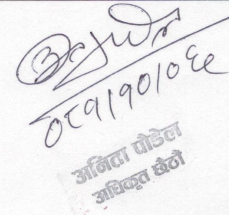 ०८१/१०/०६
अनिता पौडेल
अधिकृत छैठौं